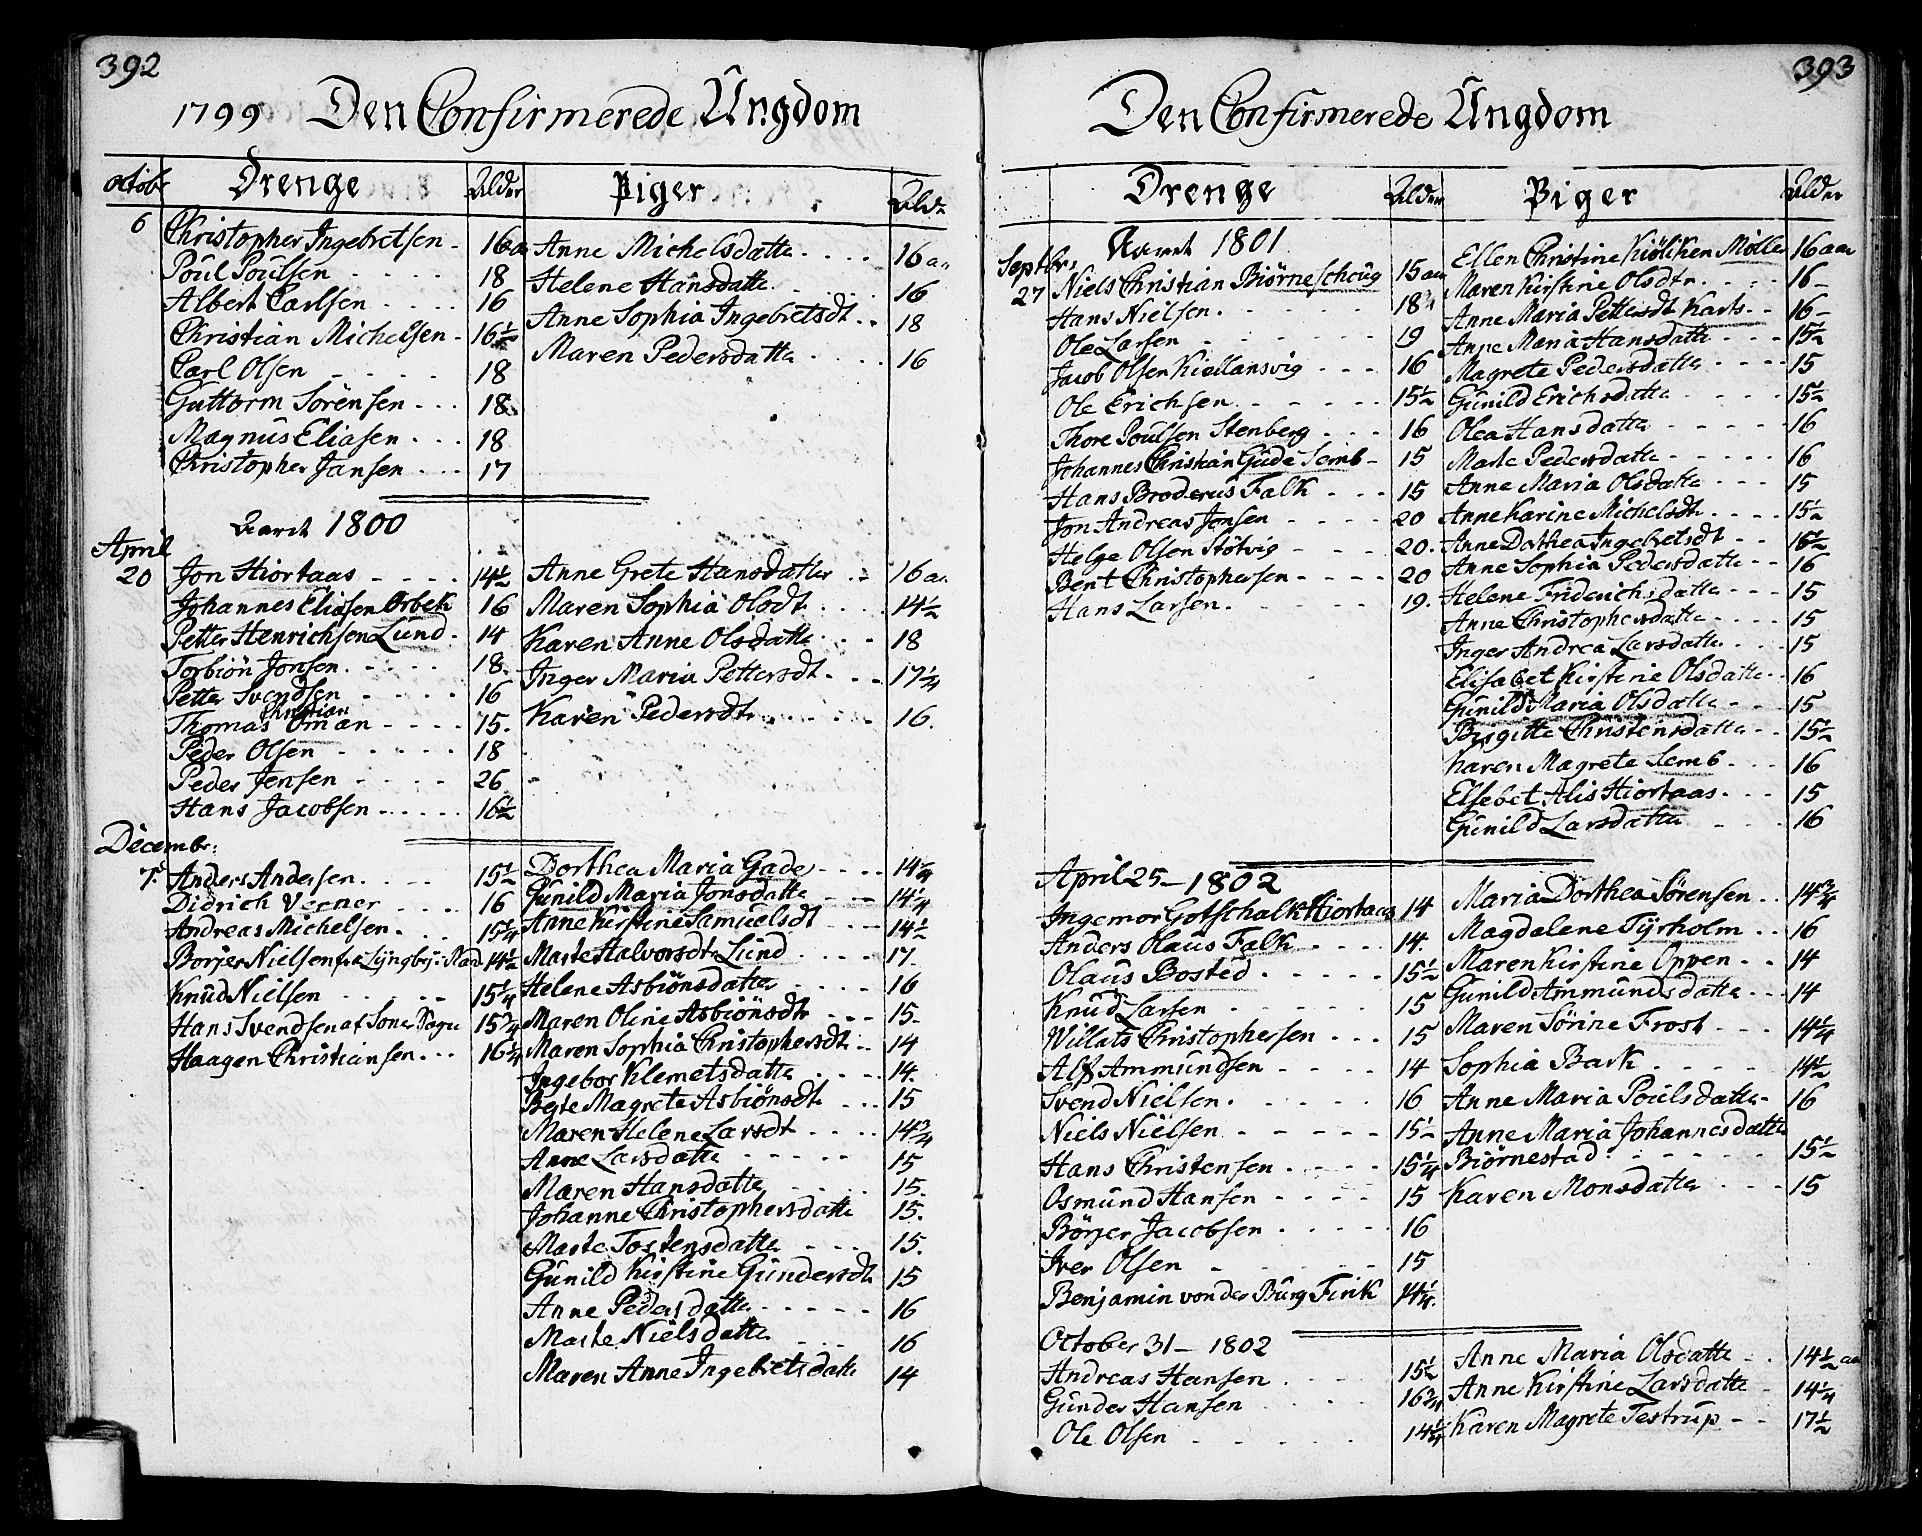 392
1799 Den Confirmerede Ungdom
octobr Drenge Alder Piger Alder
6 Christopher Ingebretsen - 16 aar
Poul Poulsen 18
Albert Carlsen 16
Christian Michelsen - 16½
Carl Olsen 18
Guttorm Sörensen 18
Magnus Eliasen 18
Christopher Jansen 17
Anne Michelsdatter 16 aar
Helene Hansdatter 16
Anne Sophia Ingebretsdtr 18
Maren Pedersdatter 16
Aaret 1800
April
20 Jon Hiortaas 14½
Johannes Eliasen Orbek 16
Petter Henrichsen Lund 14
Torbiön Jonsen 18
Petter Svendsen 16
Thomas Christian Oman 15
Peder Olsen 18
Peder Jensen 26
Hans Jacobsen 16½
Anne Grete Hansdatter 16 aar
Maren Sophia Olsdt 14½
Karen Anne Olsdatter 18
Inger Maria Pettersdt 17¼
Karen Pedersdtr 16
Decembr:
7. Anders Andersen 15½
Didrich Verner 16
Andreas Michelsen 15¼
Borger Nielsen fra Lyngbye 14½
Knud Nielsen 15¼
Hans Svendsen af Soner Sogn 15¾
Haagen Christiansen 16¼
Dorthea Maria Gade 14¼
Gunild Maria Jonsdatter 14¼
Anne Kirstine Samuelsdt 14½
Marte Halvorsdtr Lund 17
Helene Asbiönsdatter 16
Maren Oline Asbiönsdtr 15
Maren Sophia Christophersdt 14
Ingebor Klemetsdatter 14
Berte Magrete Asbiönsdt 15
Maren Helene Larsdt 14¾
Anne Larsdatter 15
Maren Hansdatter 15
Johanne Christophersdatter 15
Marte Tostensdatter 15
Gunild Kirstine Gundersdtr 15
Anne Pedersdatter 16
Marte Nielsdatter 16
Maren Anne Ingebretsdatter 14
393
Den Confirmerede Ungdom
Drenge Alder Piger Alder
Aaret 1801
Septbr:
27 Niels Christian Biörneschoug 15 aar
Hans Nielsen 18¼
Ole Larsen 19
Jacob Olsen Kiellansvig 16
Ole Erichsen 15½
Thore Poulsen Stenberg 16
Johannes Christian Gude Semb - 15
Hans Broderus Falk 15
Jon Andreas Jonsen 20
Helge Olsen Stötvig 20
Bent Christophersen 20
Hans Larsen 19
Ellen Christine Kiölsken Möller 16 aar
Maren Kirstine Olsdtr 16
Anne Maria Pettersdt Karts 16
Anne Maria Hansdatter 15½
Magrete Pedersdatter 15
Gunild Erichsdatter 15½
Olea Hansdatter 16
Marte Pedersdatter 16
Anne Maria Olsdatter 15
Anne Karine Michelsdtr 15½
Anne Dorthea Ingebretsdt 16½
Anne Sophia Pedersdatter 16
Helene Friderichsdatter 15
Anne Christophersdatter 15
Inger Andrea Larsdatter 15
Elisabet Kirstine Olsdatter 16
Gunild Maria Olsdatter 15
Birgitte Christensdatter 15½
Karen Magrete Semb 16
Elsebet Alis Hiortaas 15
Gunild Larsdatter 16
April 25 - 1802
Ingemor Gotschalk Hiortaas 14
Anders Olaus Falk 14
Olaus Bosted 15½
Knud Larsen 15
Willats Christophersen 15
Alf Ammundsen 14
Svend Nielsen 16
Niels Nielsen 15½
Hans Christensen 15¼
Osmund Hansen 15
Börger Jacobsen 16
Iver Olsen 15
Benjamin von der Burg Fink 14¼
Maria Dorthea Sörensen 14¾
Magdalene Tyrholm 16
Maren Kirstine Oppen 14
Gunild Ammundsdatter 14
Maren Sörine Frost 14¼
Sophia Bark 14½
Anne Maria Poulsdatter 16
Anne Maria Johannesdatter
Biörnestad 15½
Karen Monsdatter 15
October 31 - 1802
Andreas Hansen 15½
Gunder Hansen 16¾
Ole Olsen 14¼
Anne Maria Olsdatter 14½ aar
Anne Kirstine Larsdatter 14¼
Karen Magrete Testrup 17½